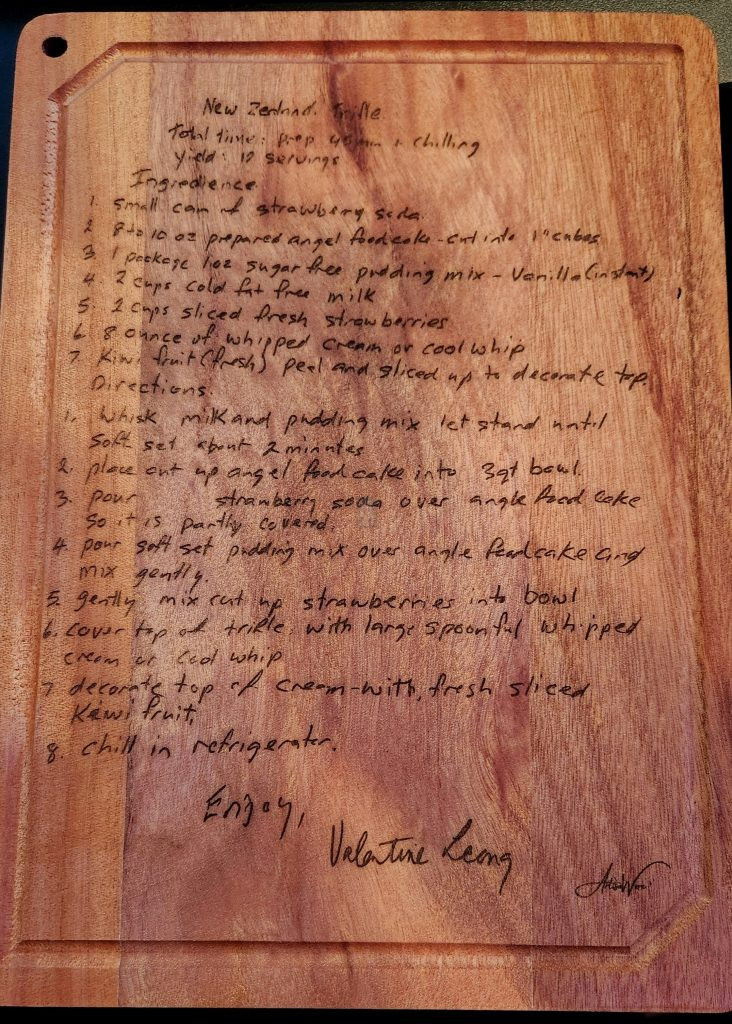 New Zealand Trifle
Total time: prep 45 min + chilling
Yield: 12 servings
Ingredience
1. small can of strawberry soda.
2. 8 to 10 oz prepared angel food cake - cut into 1" cubes
3. 1 package 1oz sugar free pudding mix - Vanilla (instant)
4. 2 cups cold fat free milk
5. 2 cups sliced fresh strawberries
6. 8 ounce of whipped cream or cool whip
7. Kiwi fruit (fresh) peel and sliced up to decorate top.
Directions.
1. Whisk milk and pudding mix let stand until
soft set about 2 minutes
2. place cut up angel food cake into 3qt bowl.
3. pour strawberry soda over angle food cake
so it is partly covered.
4. pour soft set pudding mix over angle food cake and
mix gently.
5. gently mix cut up strawberries into bowl
6. cover top of trifle with large spoonful whipped
cream or cool whip
7. decorate top of cream with, fresh sliced
Kiwi fruit,
8. chill in refrigerator.
Enjoy,
Valentine Leong